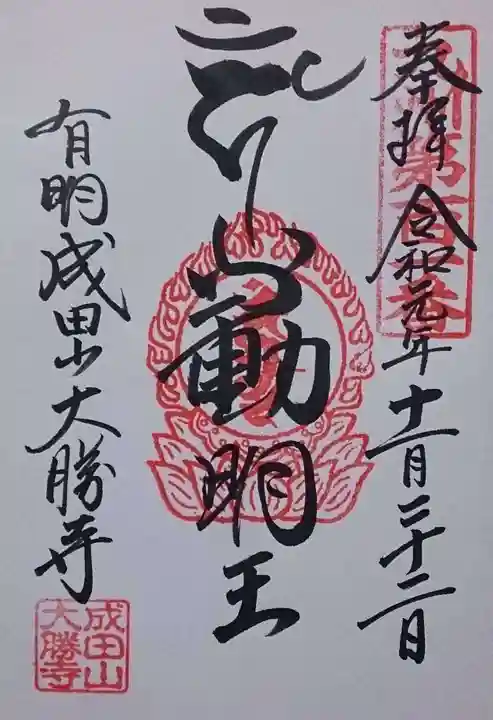 奉拝 令和元年十一月二十二日
不動明王
有明成田山大勝寺
成田山
大勝寺